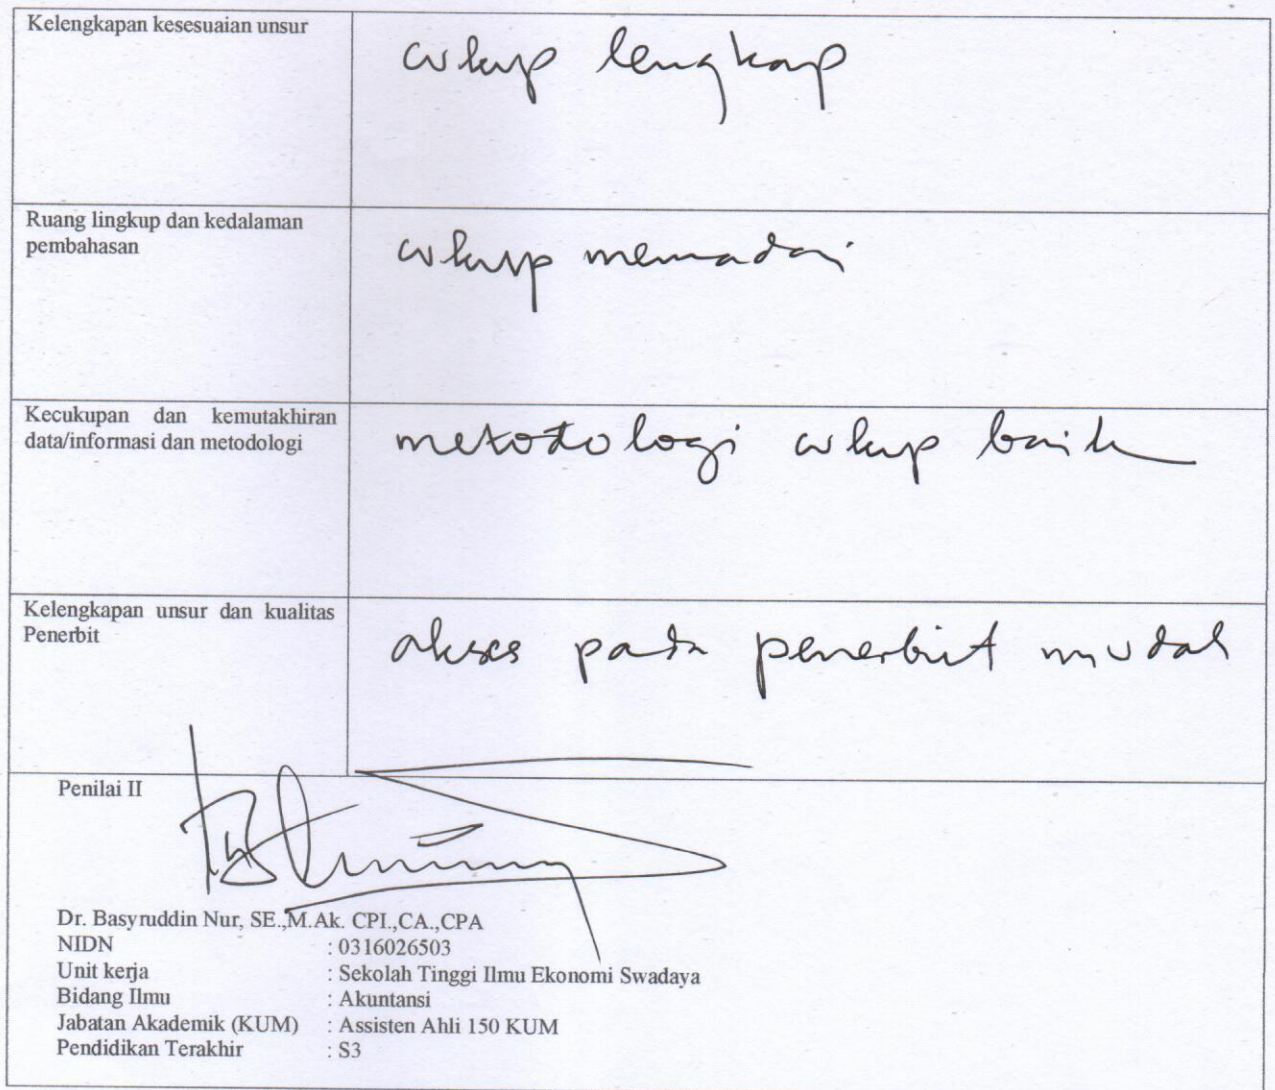 Kelengkapan kesesuaian unsur
cukup lengkap
Ruang lingkup dan kedalaman
pembahasan
cukup memadai
Kecukupan dan kemutakhiran
data/informasi dan metodologi
metodologi cukup baik
Kelengkapan unsur dan kualitas
Penerbit
akses pada penerbit mudah
Penilai II
Dr. Basyruddin Nur, SE.,M.Ak. CPI.,CA.,CPA
NIDN : 0316026503
Unit kerja : Sekolah Tinggi Ilmu Ekonomi Swadaya
Bidang Ilmu : Akuntansi
Jabatan Akademik (KUM) : Assisten Ahli 150 KUM
Pendidikan Terakhir : S3